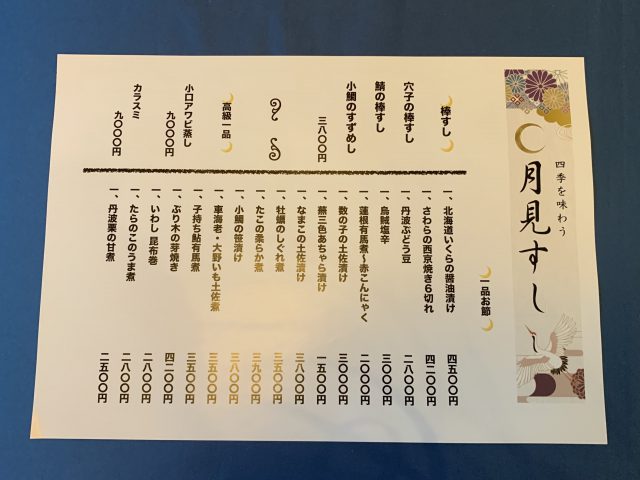 四季を味わう
月見すし
棒すし
穴子の棒すし
鯖の棒すし
小鯛のすずめし
三八〇〇円
高級一品
小口アワビ蒸し
九〇〇〇円
カラスミ
九〇〇〇円
一品お節
一、北海道いくらの醤油漬け 四五〇〇円
一、さわらの西京焼き6切れ 四二〇〇円
一、丹波ぶどう豆 二八〇〇円
一、烏賊塩辛 三〇〇〇円
一、蓮根有馬煮～赤こんにゃく 二〇〇〇円
一、数の子の土佐漬け 三〇〇〇円
一、蕪三色あちゃら漬け 一五〇〇円
一、なまこの土佐漬け 三八〇〇円
一、牡蠣のしぐれ煮 三五〇〇円
一、たこの柔らか煮 三九〇〇円
一、小鯛の笹漬け 三八〇〇円
一、車海老・大野いも土佐煮 三五〇〇円
一、子持ち鮎有馬煮 三五〇〇円
一、ぶり木の芽焼き 四二〇〇円
一、いわし 昆布巻 二八〇〇円
一、たらのこのうま煮 二八〇〇円
一、丹波栗の甘煮 二五〇〇円